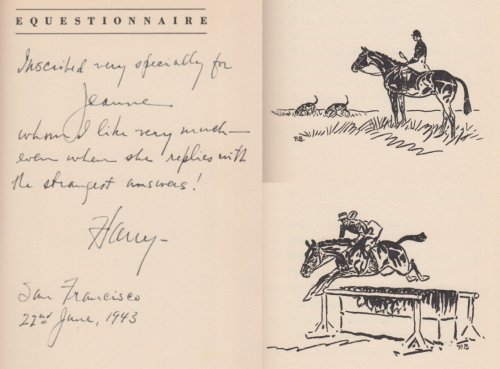 EQUESTIONNAIRE
Inscribed very specially for
Jeanne
whom I like very much—
even when she replies with
the strangest answers!
Harry—
San Francisco
22nd June, 1943
PB.
PB